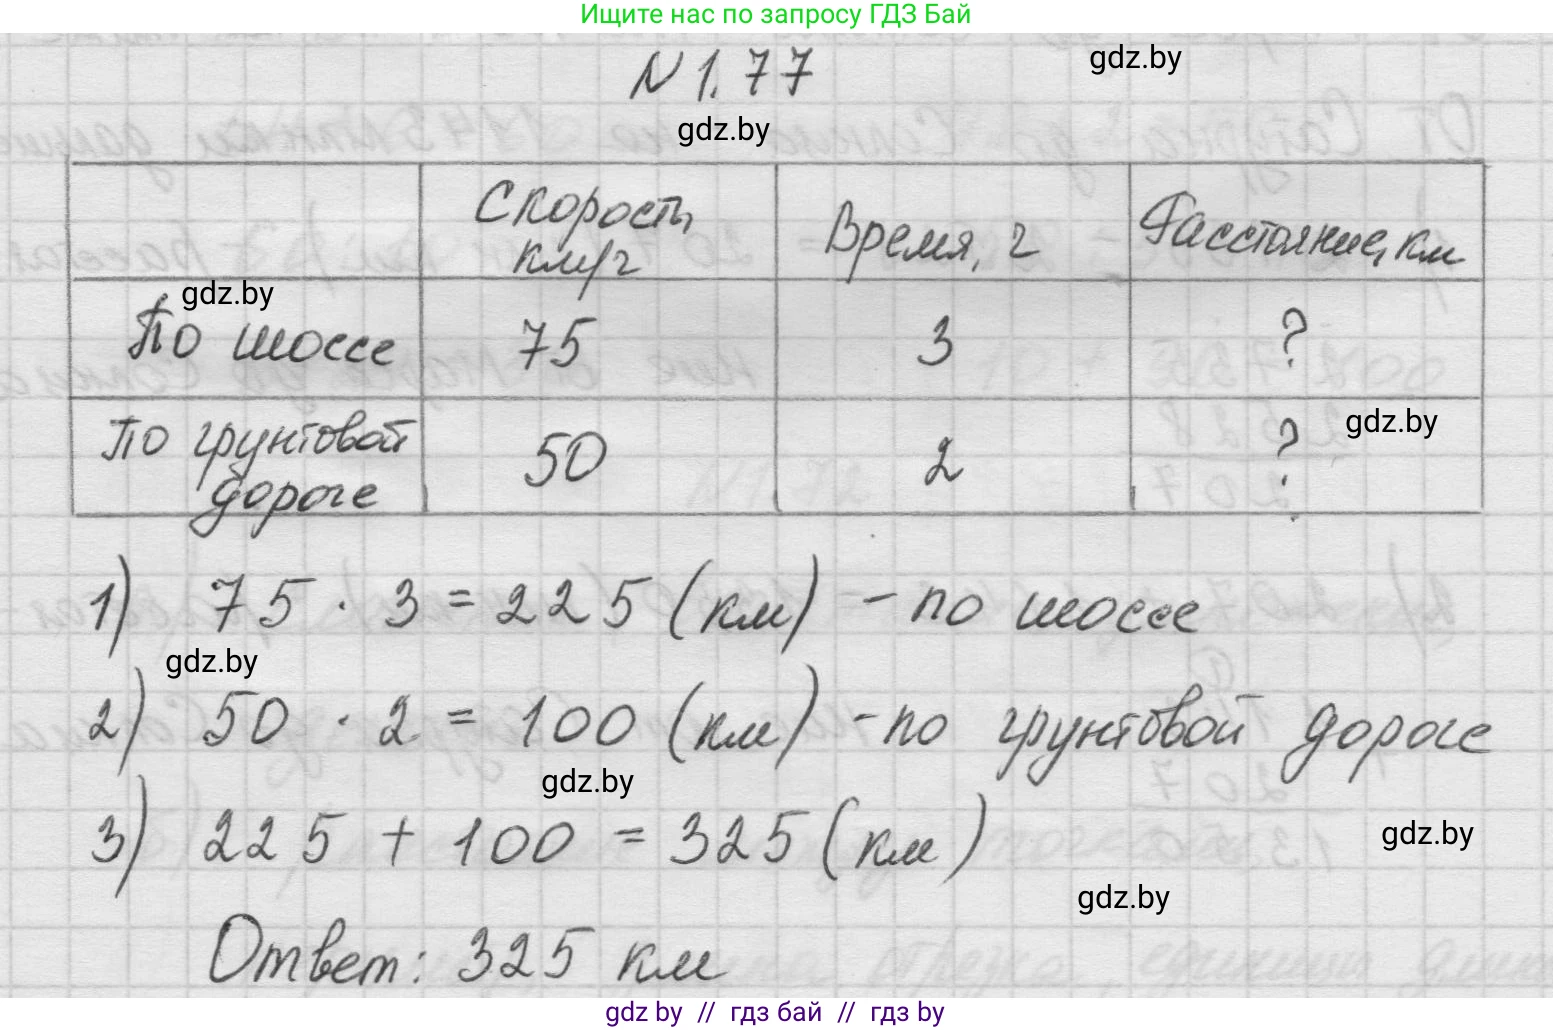 Ищите нас по запросу ГДЗ Бай
N 1.77
gdz.by
gdz.by
Скорость, км/ч
Время, ч
Расстояние, км
gdz.by
По шоссе
75
3
?
По грунтовой дороге
50
2
?
gdz.by
1) 75 · 3 = 225 (км) - по шоссе
gdz.by
2) 50 · 2 = 100 (км) - по грунтовой дороге
gdz.by
3) 225 + 100 = 325 (км)
gdz.by
gdz.by
Ответ: 325 км
gdz by // гдз бай // гдз by